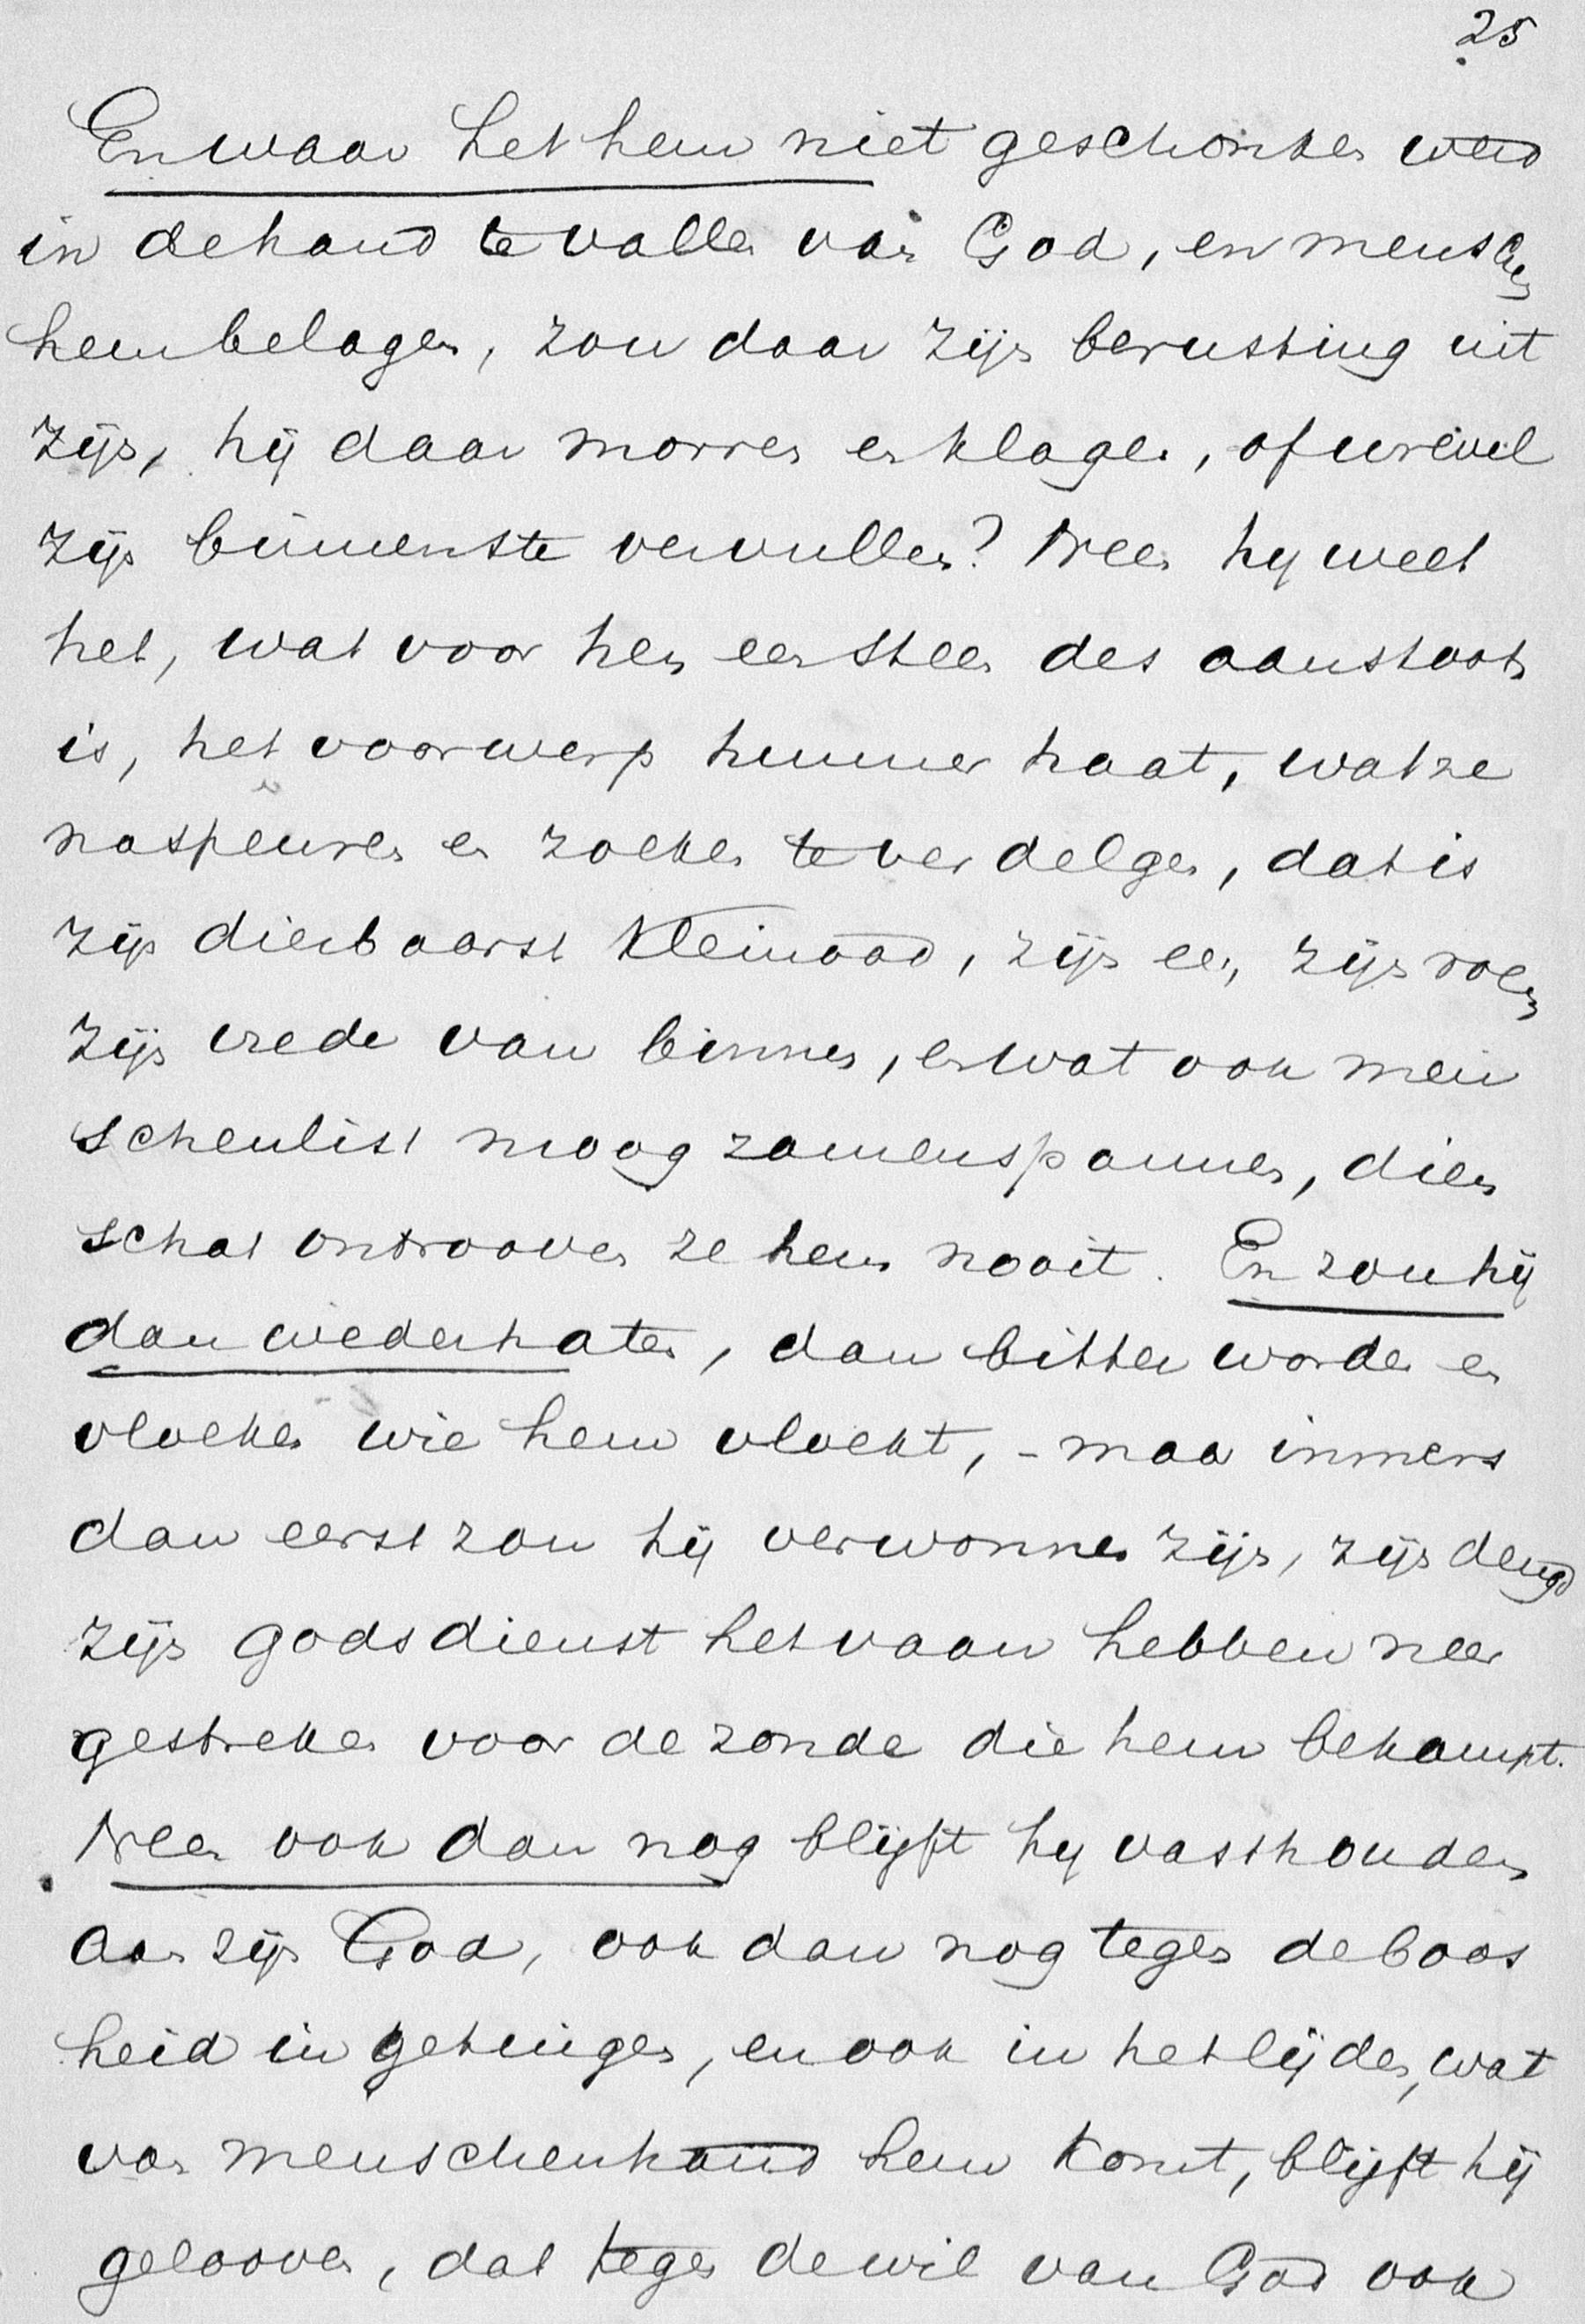 25
En waar het hem niet geschonken werd
in de hand te vallen van God, en menschen
hem belagen, zou daar zijn berusting uit
zijn, hij daar morren en klagen, of wrevel
zijn binnenste vervullen? Neen hij weet
het, wat voor hen een steen des aanstoots
is, het voorwerp hunner haat, wat ze
naspeuren en zoeken te verdelgen, dat is
zijn dierbaarst kleinood, zijn eer, zijn roem
zijn vrede van binnen, en wat ook men
schenlist moog zamenspannen, dien
schat ontrooven ze hem nooit. En zou hij
dan wederhaten, dan bitter worden en
vloeken wie hem vloekt, - maar immers
dan eerst zou hij verwonnen zijn, zijn deugd
zijn godsdienst het vaan hebben neer
gestreken voor de zonde die hem bekampt.
Neen ook dan nog blijft hij vasthouden
aan zijn God, ook dan nog tegen de boos
heid in getuigen, en ook in het lijden, wat
van menschenhand hem komt, blijft hij
gelooven, dat tegen de wil van God ook